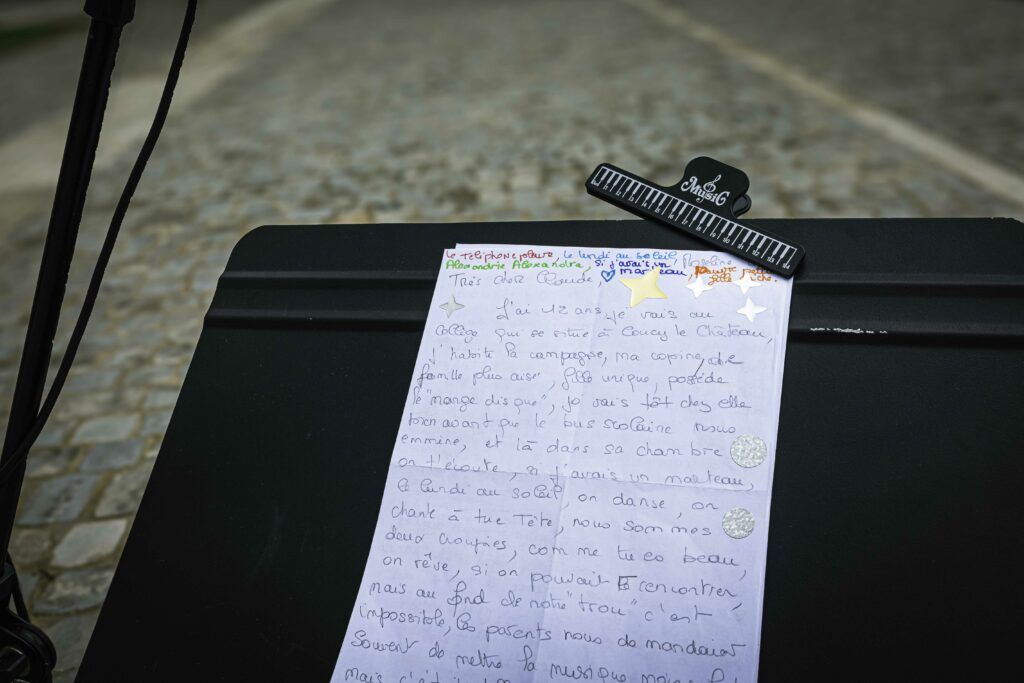 MUSIC
Le Téléphone pleure, le lundi au soleil,
Alexandrie Alexandra, Si j'avais un marteau, pauvre petite fille riche.
Très cher Claude,
J'ai 12 ans, je vais au
collège qui se situe à Coucy le Château,
j'habite la campagne, ma copine, de
famille plus aisé, fille unique, possède
le "mange disque", je vais tôt chez elle
bien avant que le bus scolaire nous
emmine, et là dans sa chambre
on t'écoute, si j'avais un marteau,
le lundi au soleil, on danse, on
chante à tue Tête, nous sommes
deux groupies, comme tu es beau,
on rêve, si on pouvait te rencontrer,
mais au fond de notre "trou" c'est
impossible, les parents nous demandaient
souvent de mettre la musique moins
mais c'était